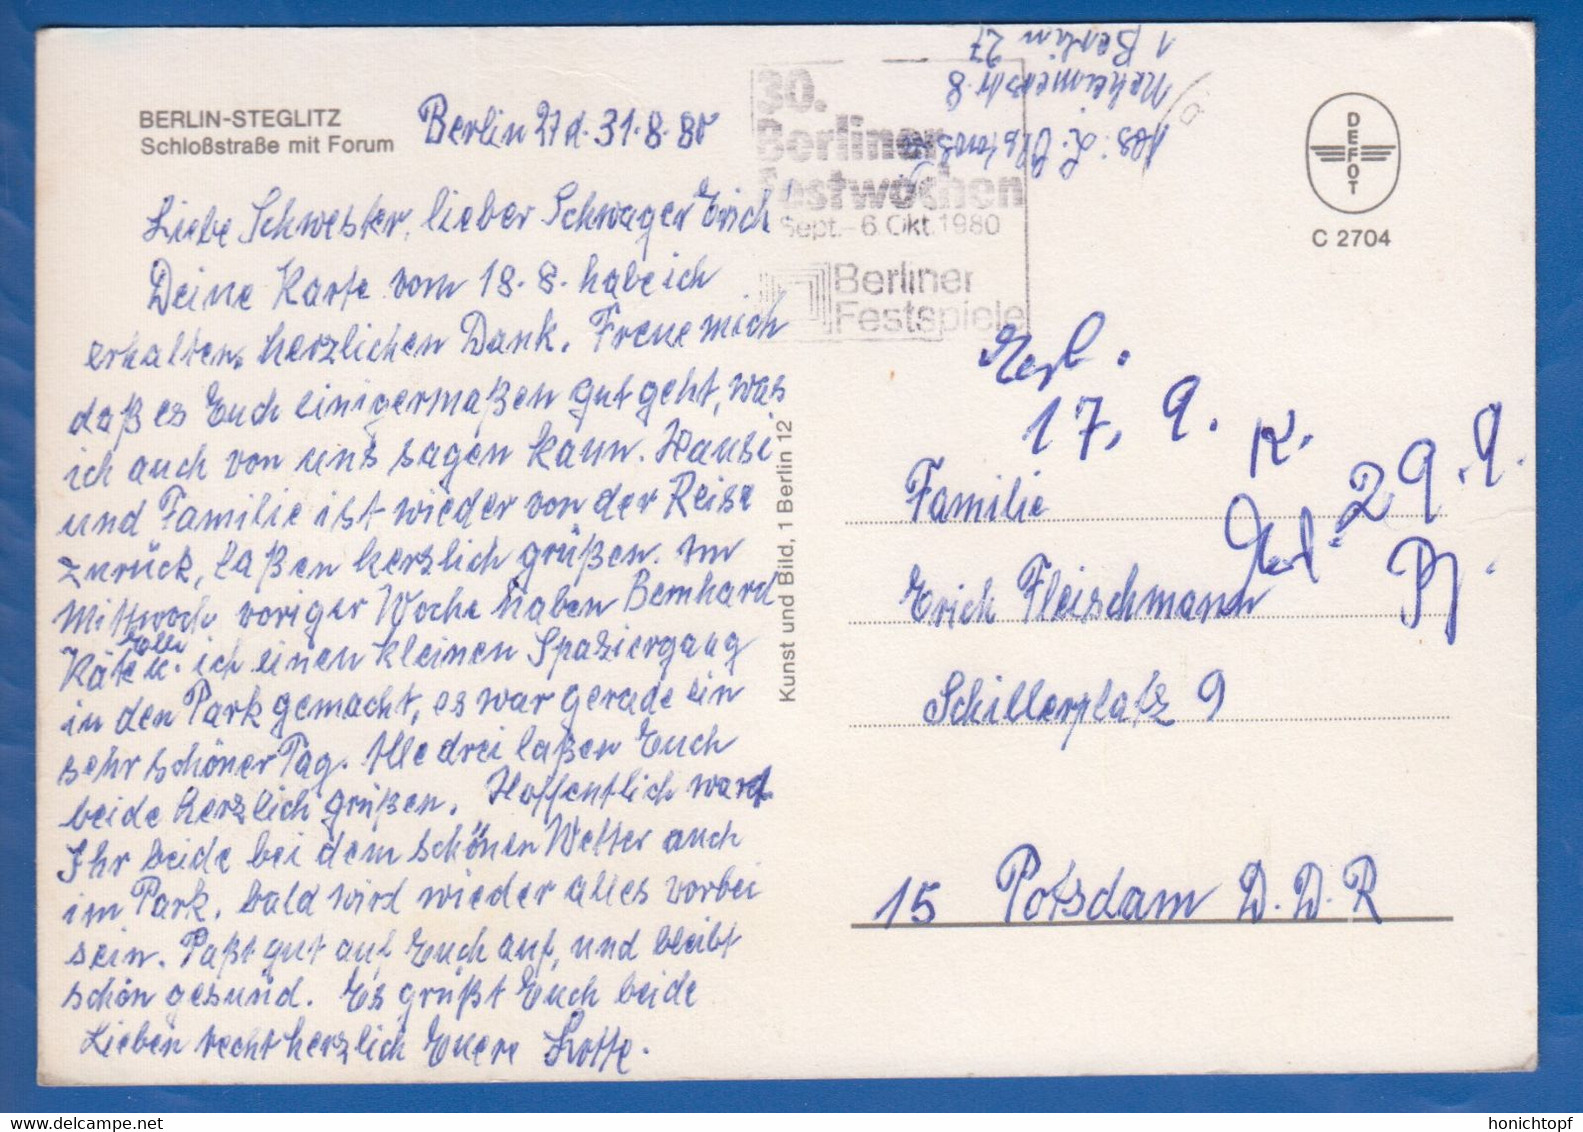 BERLIN-STEGLITZ
Schloßstraße mit Forum
Berlin 27 d. 31.8.80
Liebe Schwester, lieber Schwager Erich
Deine Karte vom 18.8. habe ich
erhalten, herzlichen Dank. Freue mich
daß es Euch einigermaßen gut geht, was
ich auch von uns sagen kann. Hansi
und Familie ist wieder von der Reise
zurück, laßen herzlich grüßen. Im
Mittwoch voriger Woche haben Bernhard
Käte Elli u. ich einen kleinen Spaziergang
in den Park gemacht, es war gerade ein
sehr schöner Tag. Alle drei laßen Euch
beide herzlich grüßen. Hoffentlich wart
Ihr beide bei dem schönen Wetter auch
im Park, bald wird wieder alles vorbei
sein. Paßt gut auf Euch auf, und bleibt
schön gesund. Es grüßt Euch beide
Lieben recht herzlich Euere Lotte.
Kunst und Bild, 1 Berlin 12
30.
Berliner
Festwochen
Sept.-6.Okt.1980
Berliner
Festspiele
Abs: L.
8
1 Berlin 27
DEFOT
C 2704
17. 9. K.
29.9.
Familie
Erich Fleischmann
Schillerplatz 9
15 Potsdam D.D.R
honichtopf